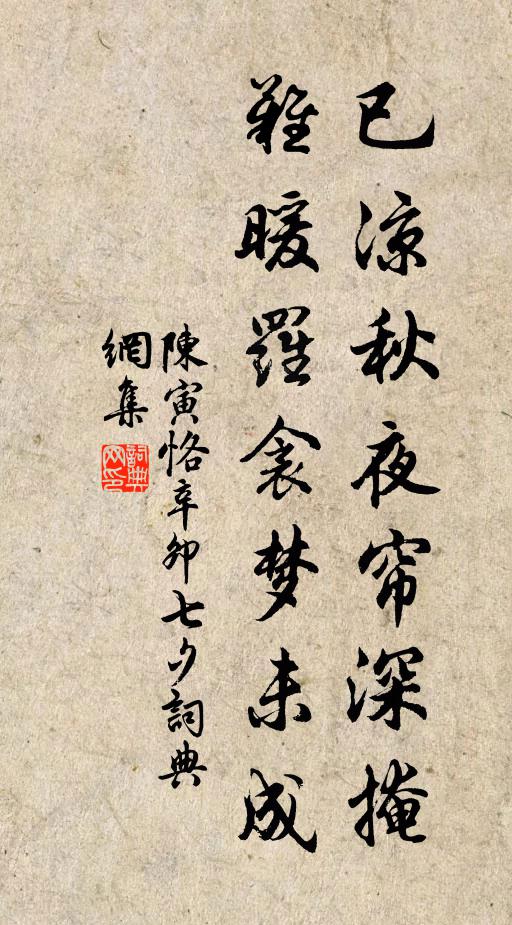 已涼秋夜帘深掩
難暖羅衾梦未成
陳寅恪辛卯七夕詞典
網集
詞典
网印